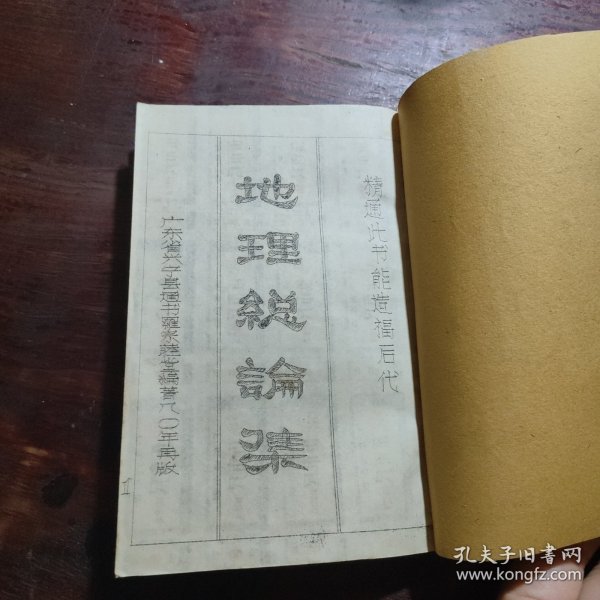 精通此书能造福后代
地理総論集
广东省兴宁县通书罗家 八〇年再版
孔夫子旧书网
www.kongfz.com